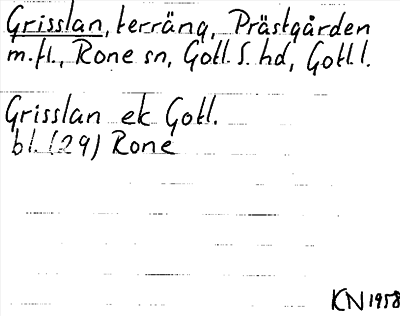 Grisslan, terräng, Prästgården
m.fl., Rone sn, Gotl. S. hd, Gotl. l.
Grisslan ek Gotl.
bl. (29) Rone
KN 1958